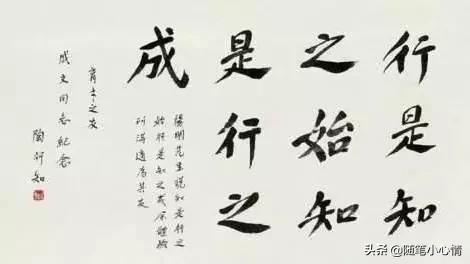 行是知
之始知
是行之
成
陽明先生説知是行之
始行是知之成余體驗
適為其反
育才之友
成文同志紀念
陶行知
头条 @随笔小心情